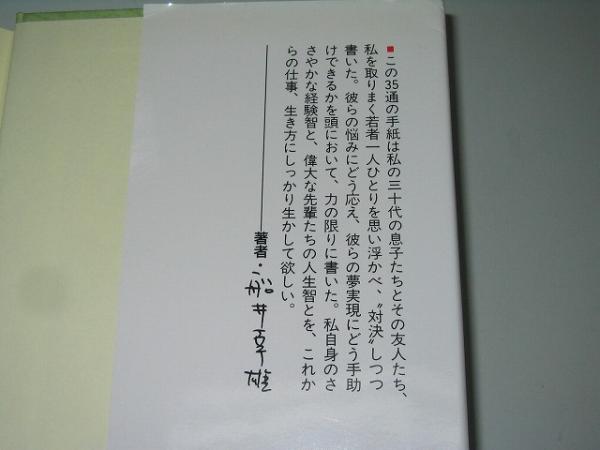 ■この35通の手紙は私の三十代の息子たちとその友人たち、
私を取りまく若者一人ひとりを思い浮かべ、〝対決〟しつつ
書いた。彼らの悩みにどう応え、彼らの夢実現にどう手助
けできるかを頭において、力の限りに書いた。私自身のさ
さやかな経験智と、偉大な先輩たちの人生智とを、これか
らの仕事、生き方にしっかり生かして欲しい。
著者・船井幸雄